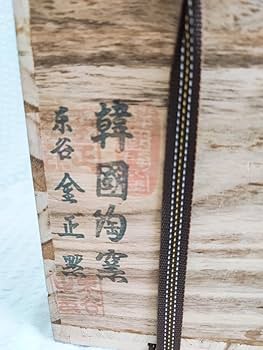 韓國陶窯
东谷 金正黙